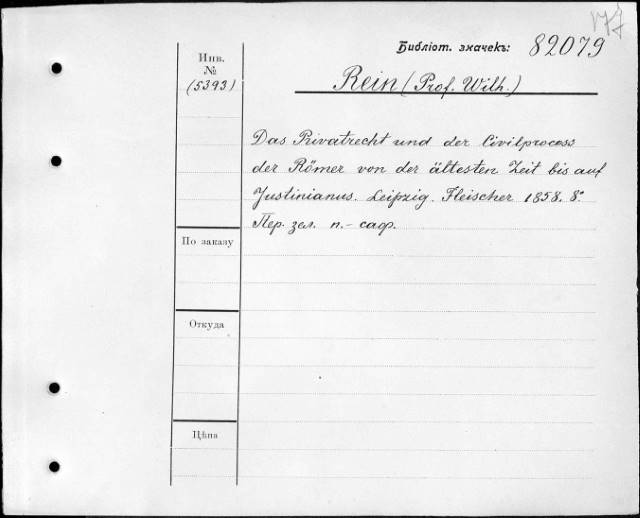 Библіот. значекъ: 82079
Инв.
№
(5393)
Rein (Prof. Wilh.)
Das Privatrecht und der Civilprocess
der Römer von der ältesten Zeit bis auf
Justinianus. Leipzig. Fleischer 1858. 8º
Пер. зел. п.-саф.
По заказу
Откуда
Цѣна